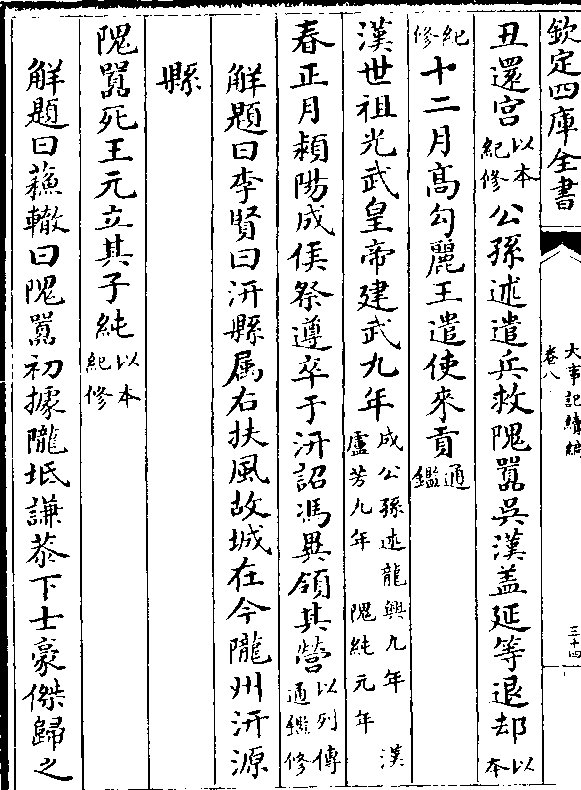 欽定四庫全書
大事記續編
卷八
三十四
丑還宮以本紀修公孫述遣兵救隗囂吳漢盖延等退却以本
紀修十二月髙勾麗王遣使來貢通鑑
漢世祖光武皇帝建武九年成公孫述龍興九年 漢盧芳九年 隗純元年
春正月潁陽成侯祭遵卒于汧詔馮異領其營以列傳通鑑修
解題曰李賢曰汧縣属右扶風故城在今隴州汧源
縣
隗囂死王元立其子純以本紀修
解題曰蘓轍曰隗囂初據隴坻謙恭下士豪傑歸之